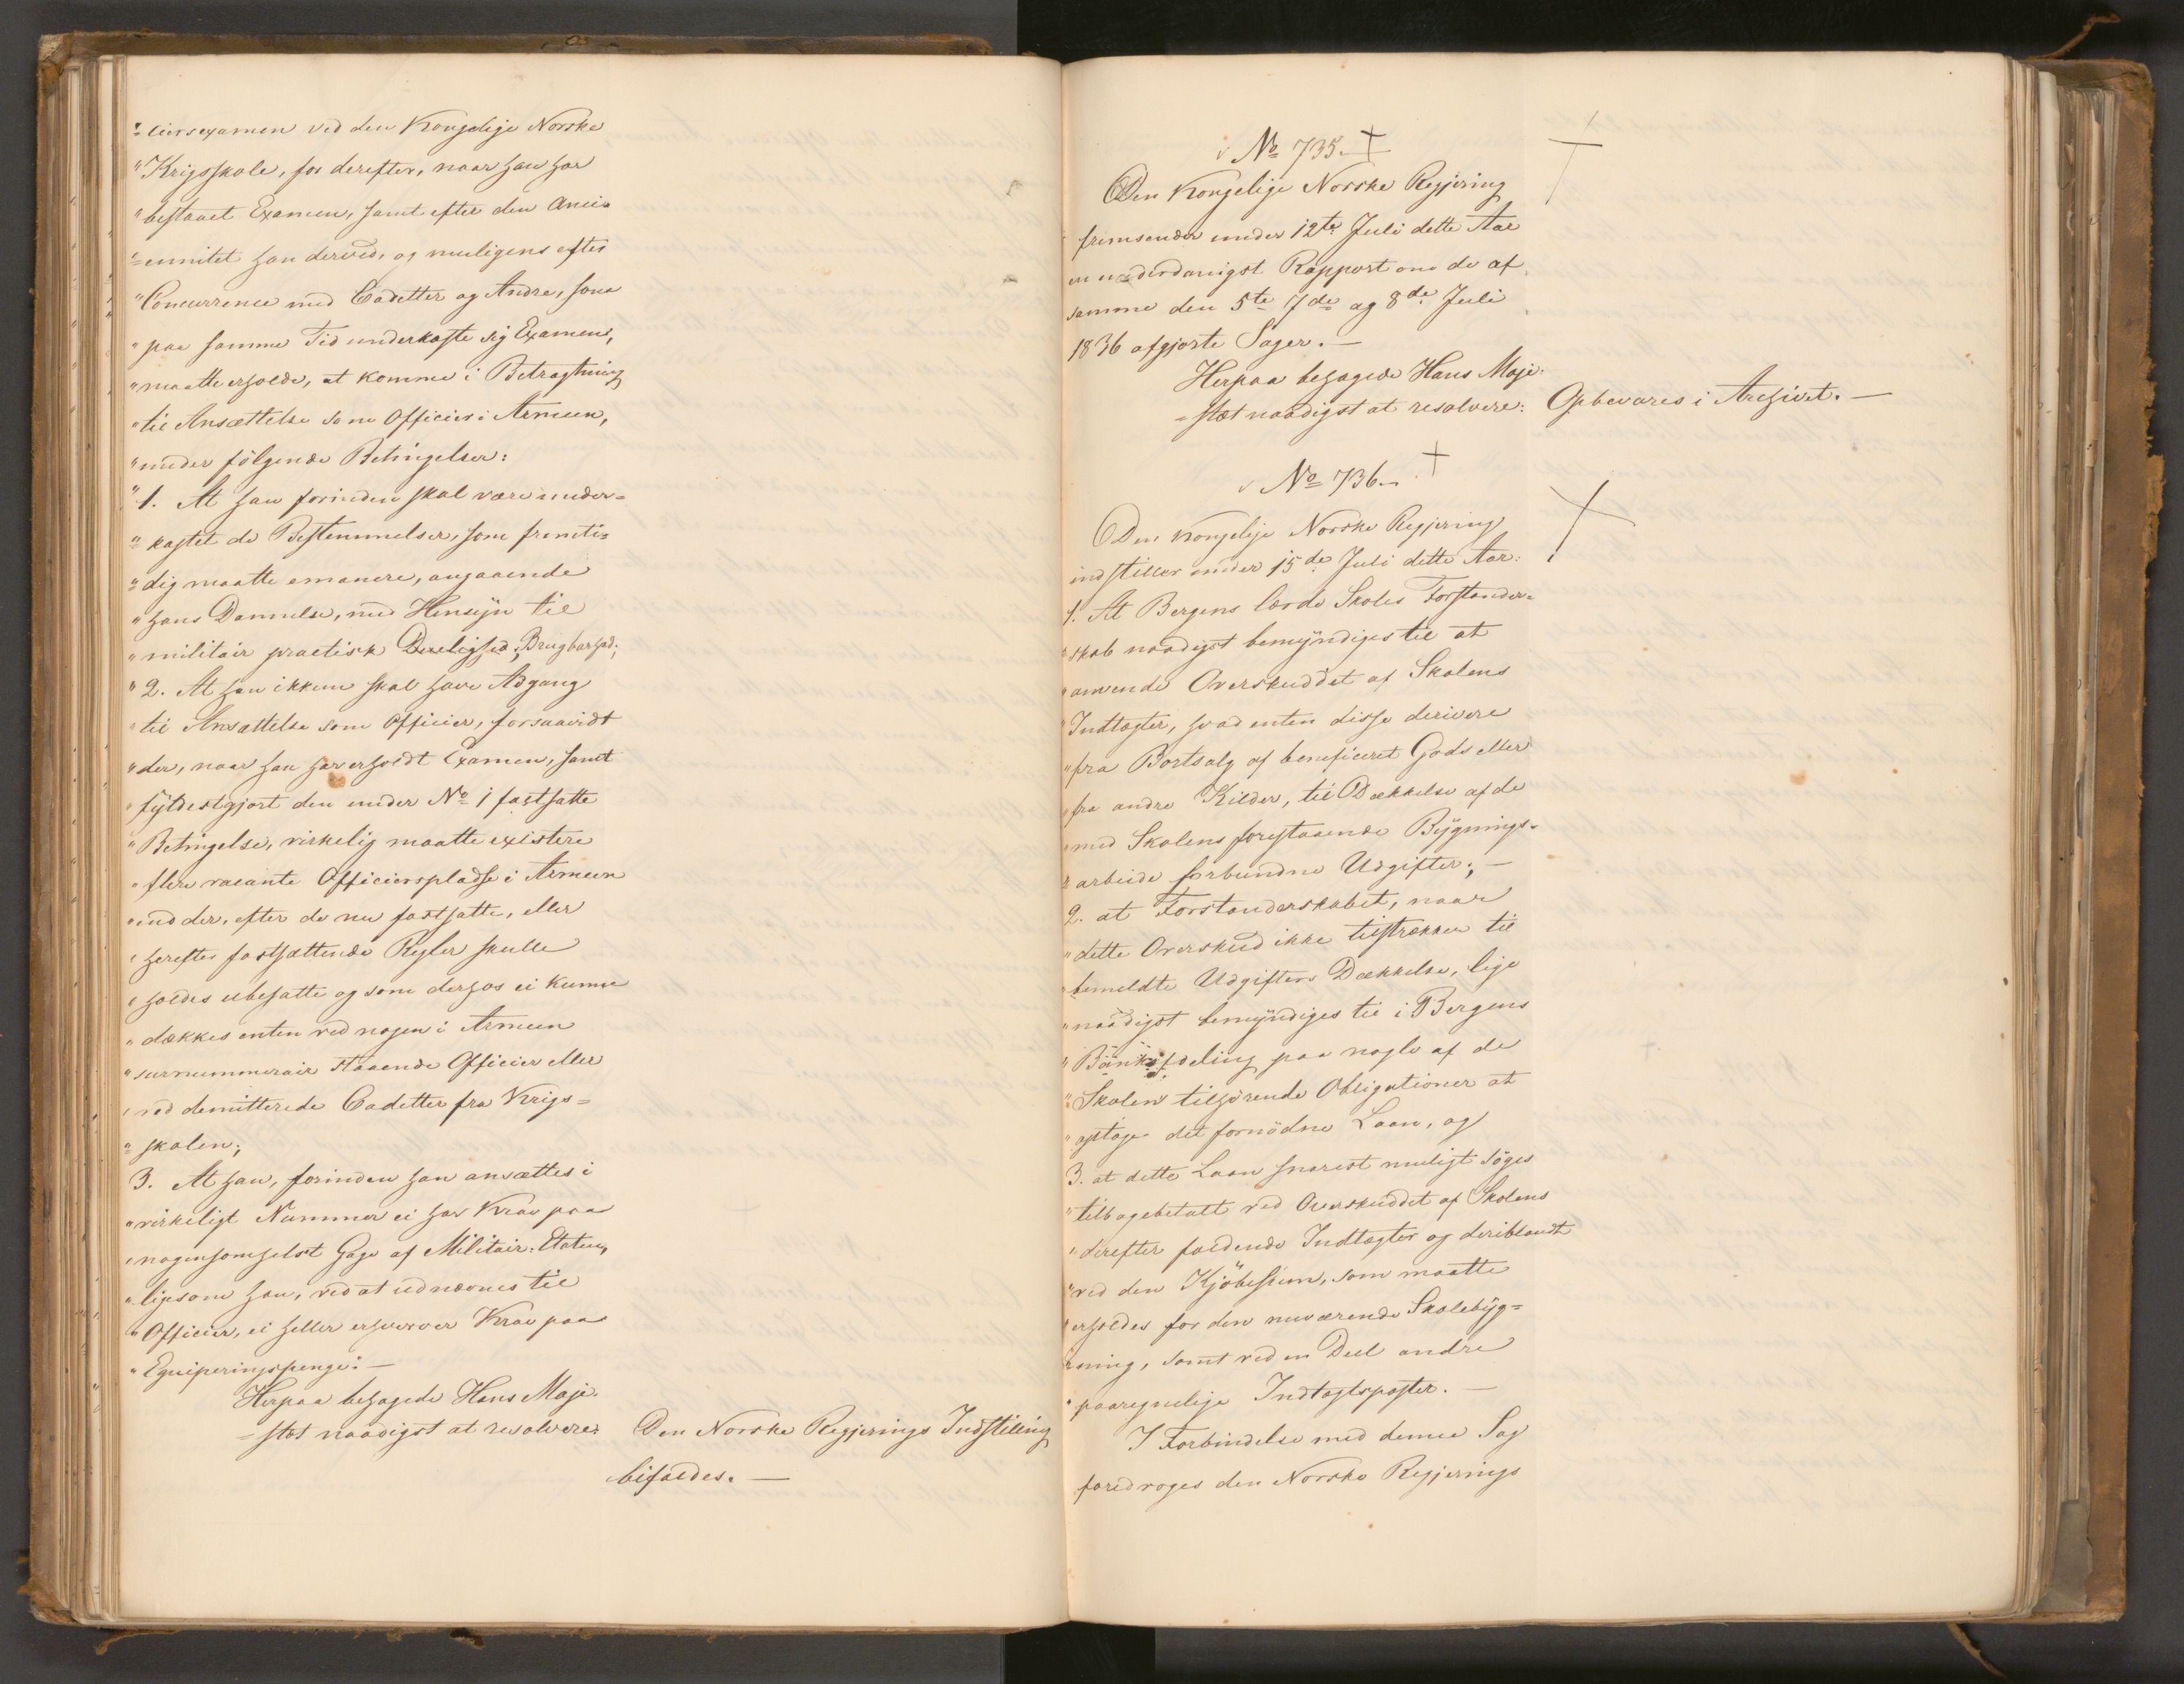 "=ciersexamen ved den Kongelige Norske
"Krigsskole, for derefter, naar han har
"bestaaet Examen, samt efter den Anci=
"=ennitet han derved, og muligens efter
"Concurrence med Cadetter og Andre, som
"paa samme Tid underkaste sig Examen,
"maatte erholde, at komme i Betragtning
"til Ansættelse som Officier i Armeen,
"under følgende Betingelser:
"1. At han forinden skal være under=
"=kastet de Bestemmelser, som fremti=
"=dig maatte emanere, angaaende
"hans Dannelse, med Hensyn til
"militair practisk Duelighed; Brugbarhed;
"2. At han ikkun skal have Adgang
"til Ansættelse som Officier, forsaavidt
"der, naar han har erholdt Examen, samt
"fyldestgjort den under No 1 fastsatte
"Betingelse, virkelig maatte existere
"flere vacante Officierspladse i Armeen
"end der, efter de nu fastsatte, eller
"herefter fastsættende Regler skulle
"holdes ubesatte og som derhos ei kunne
"dækkes enten ved nogen i Armeen
"surnummerair staaende Officier eller
"ved demitterede Cadetter fra Krigs=
"=skolen;
3. At han, forinden han ansættes i
"virkeligt Nummer ei har Krav paa
"nogensomhelst Gage af Militair-Etaten,
"ligesom han, ved at udnævnes til
"Officier, ei heller erhverver Krav paa
"Equiperingspenge". —
Herpaa behagede Hans Maje=
=stæt naadigst at resolvere: Den Norske Regjerings Indstilling
bifaldes. —
No 735.
Den Kongelige Norske Regjering
fremsender under 12te Juli dette Aar
en underdanigst Rapport om de af
samme den 5te 7de og 8de Juli
1836 afgjorte Sager. —
Herpaa behagede Hans Maje=
=stæt naadigst at resolvere: Opbevares i Archivet. —
No 736.
Den Kongelige Norske Regjering
indstiller under 15de Juli dette Aar:
1. At Bergens lærde Skoles Forstander=
"skab naadigst bemyndiges til at
"anvende Overskuddet af Skolens
"Indtægter, hvad enten disse derivere
"fra Bortsalg af beneficeret Gods eller
"fra andre Kilder, til Dækkelse af de
"med Skolens forestaaende Bygnings=
"arbeide forbundne Udgifter; —
2. at Forstanderskabet, naar
"dette Overskud ikke tilstrækker til
"bemeldte Udgifters Dækkelse, lige
"naadigst bemyndiges til i Bergens
"Bankafdeling paa nogle af de
"Skolen tilhørende Obligationer at
"optage det fornødne Laan, og
3. at dette Laan snarest muligt søges
"tilbagebetalt ved Overskuddet af Skolens
"derefter faldende Indtægter og deriblandt
"ved den Kjøbesum, som maatte
"erholdes for den nuværende Skolebyg=
"=ning, samt ved en Deel andre
"paaregnelige Indtægtsposter. —
I Forbindelse med denne Sag
foredroges den Norske Regjerings